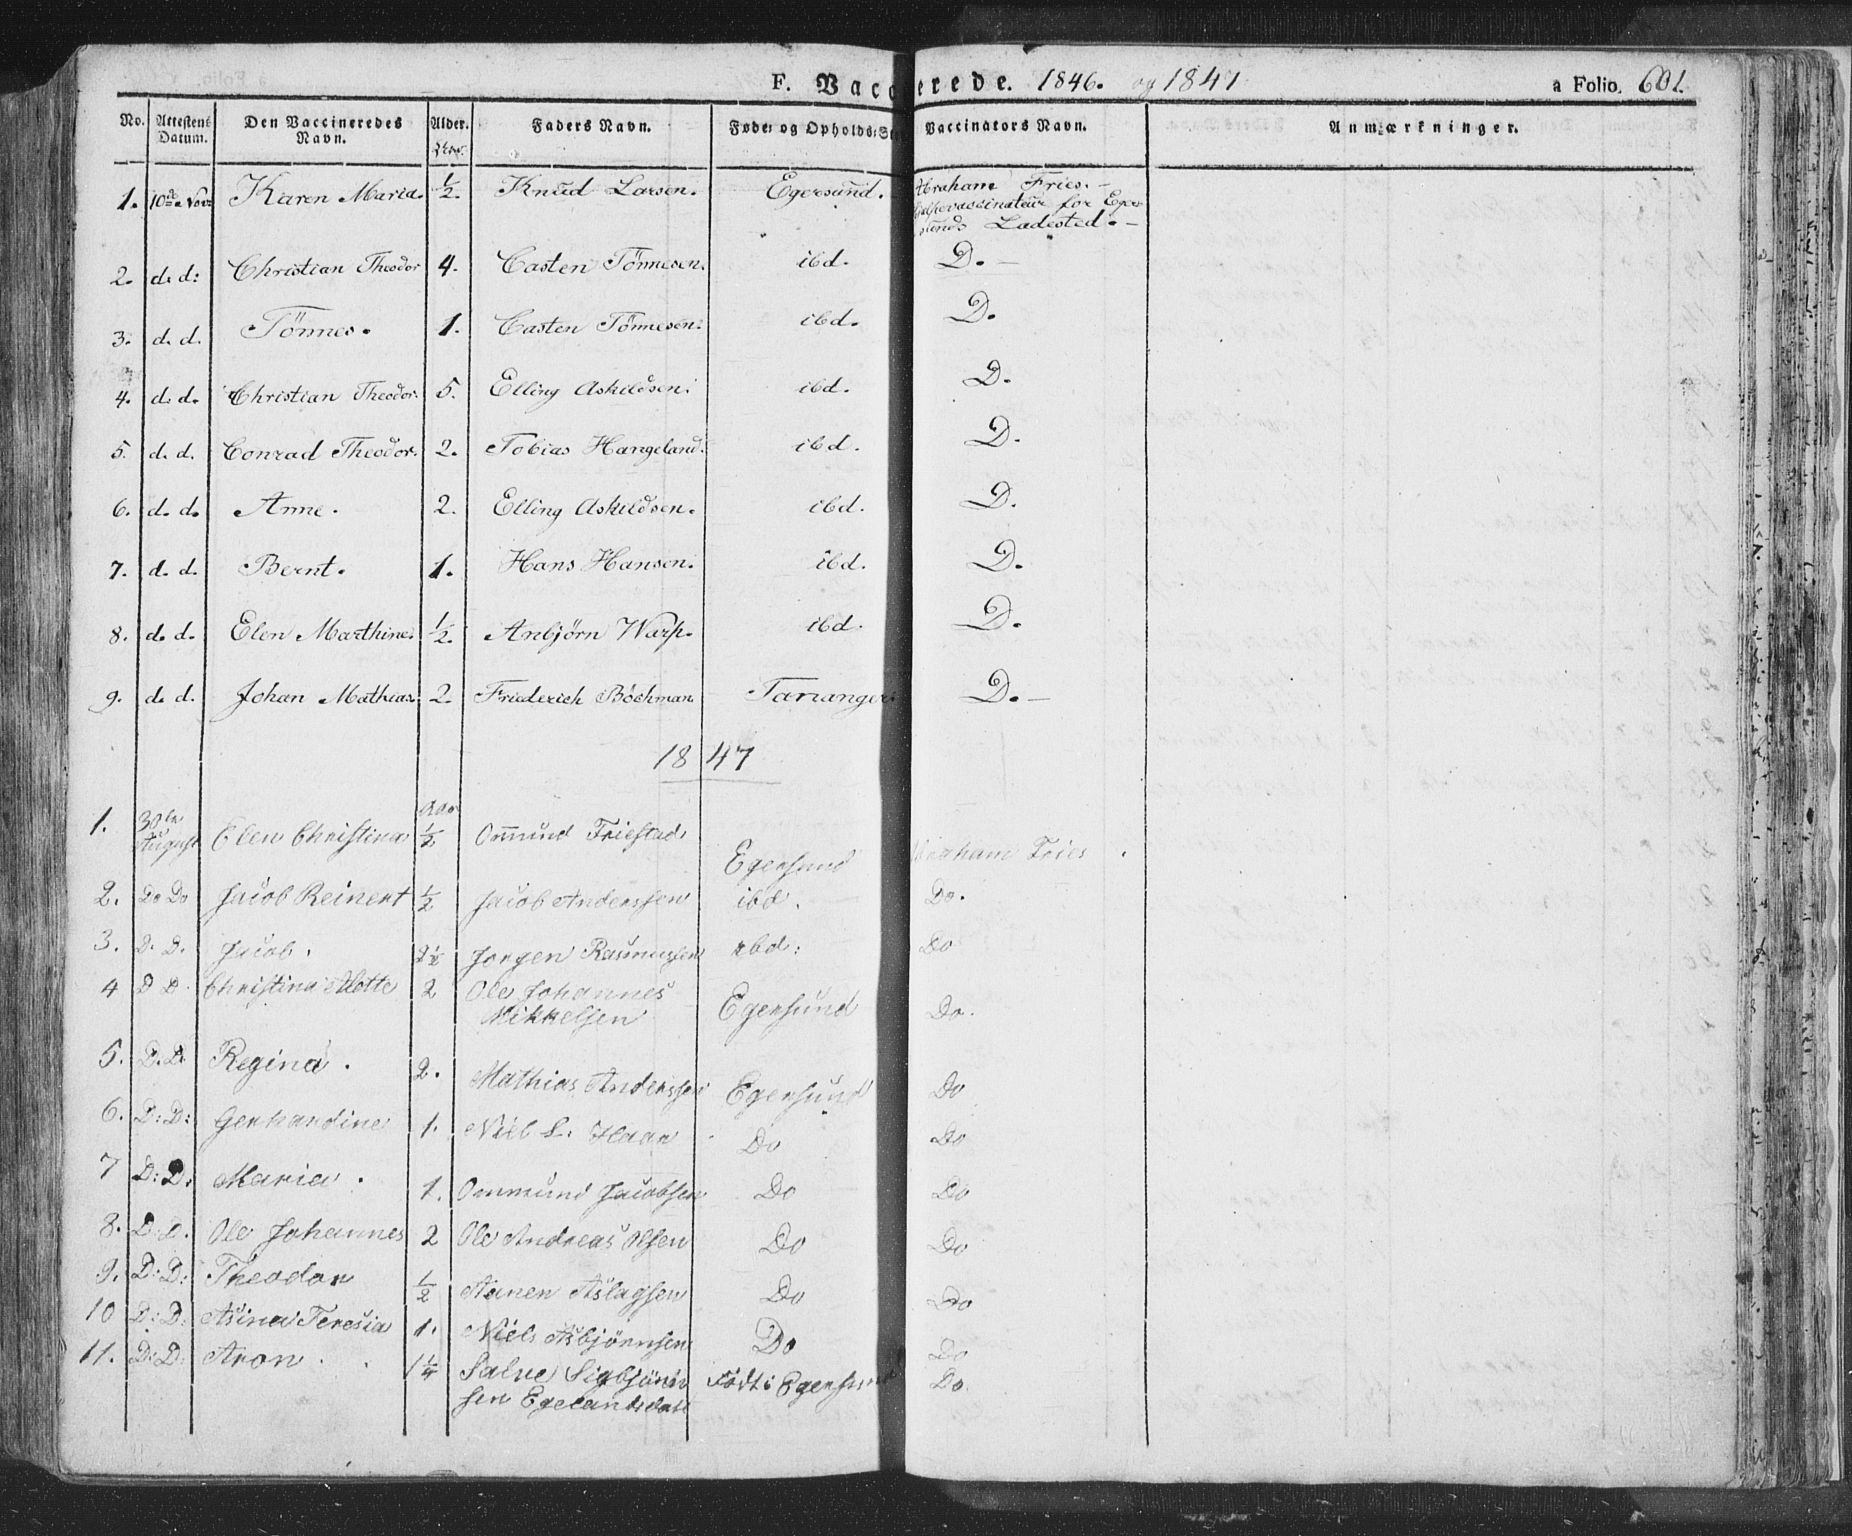 F. Vaccinerede. 1846. og 1847 a Folio. 601.
No. Attestens Datum. Den Vaccineredes Navn. Alder. Faders Navn. Føde- og Opholds-Sted Vaccinators Navn. Anmærkninger.
1. 10de Novr Karen Maria. 1/2. Knud Larsen. Egersund. Abraham Fries.-
Hjelpevaccinateur for Eger-
sunds Ladested.-
2. d. d: Christian Theodor 4. Casten Tönnesen. ibd. D.-
3. d. d. Tönnes. 1. Casten Tönnesen. ibd. D.
4. d. d. Christian Theodor. 5. Elling Askildsen. ibd. D.
5. d. d. Conrad Theodor. 2. Tobias Hangeland. ibd. D.
6. d. d. Anne. 2. Elling Askildsen. ibd. D.
7. d. d. Bernt. 1. Hans Hansen. ibd. D.
8. d. d. Elen Marthine. 1/2. Anbjörn Warp. ibd. D.
9. d. d. Johan Mathias. 2. Friederich Böchman Tananger. D.-
1847
1. 30te August Elen Christina 1/2 Ommund Friestad Egersund Abraham Fries
2. Do Do Jacob Reinert 1/2 Jacob Anderssen ibd. Do.
3. D. D. Jacob. 2 1/2 Jorgen Rasmussen ibd: Do
4 D D. Christina Mette 2 Ole Johannes
Mikkelsen Egersund Do.
5. D. D. Regina. 2. Mathias Anderssen Egersund Do
6. D: D: Gerhardine 1. Niels L. Haar Do Do
7 D: D. Maria. 1. Ommund Jacobsen Do Do
8. D: D. Ole Johannes 2 Ole Andreas Olsen Do Do
9. D: D: Theodor 1/2 Aanen Aslagsen Do Do
10 D: D: Asina Teresia 1. Niels Asbjörnsen Do Do
11. D: D: Aron. 1 1/4 Salve Sigbjörn-
sen Egelandsdal Födt i Egersund Do.